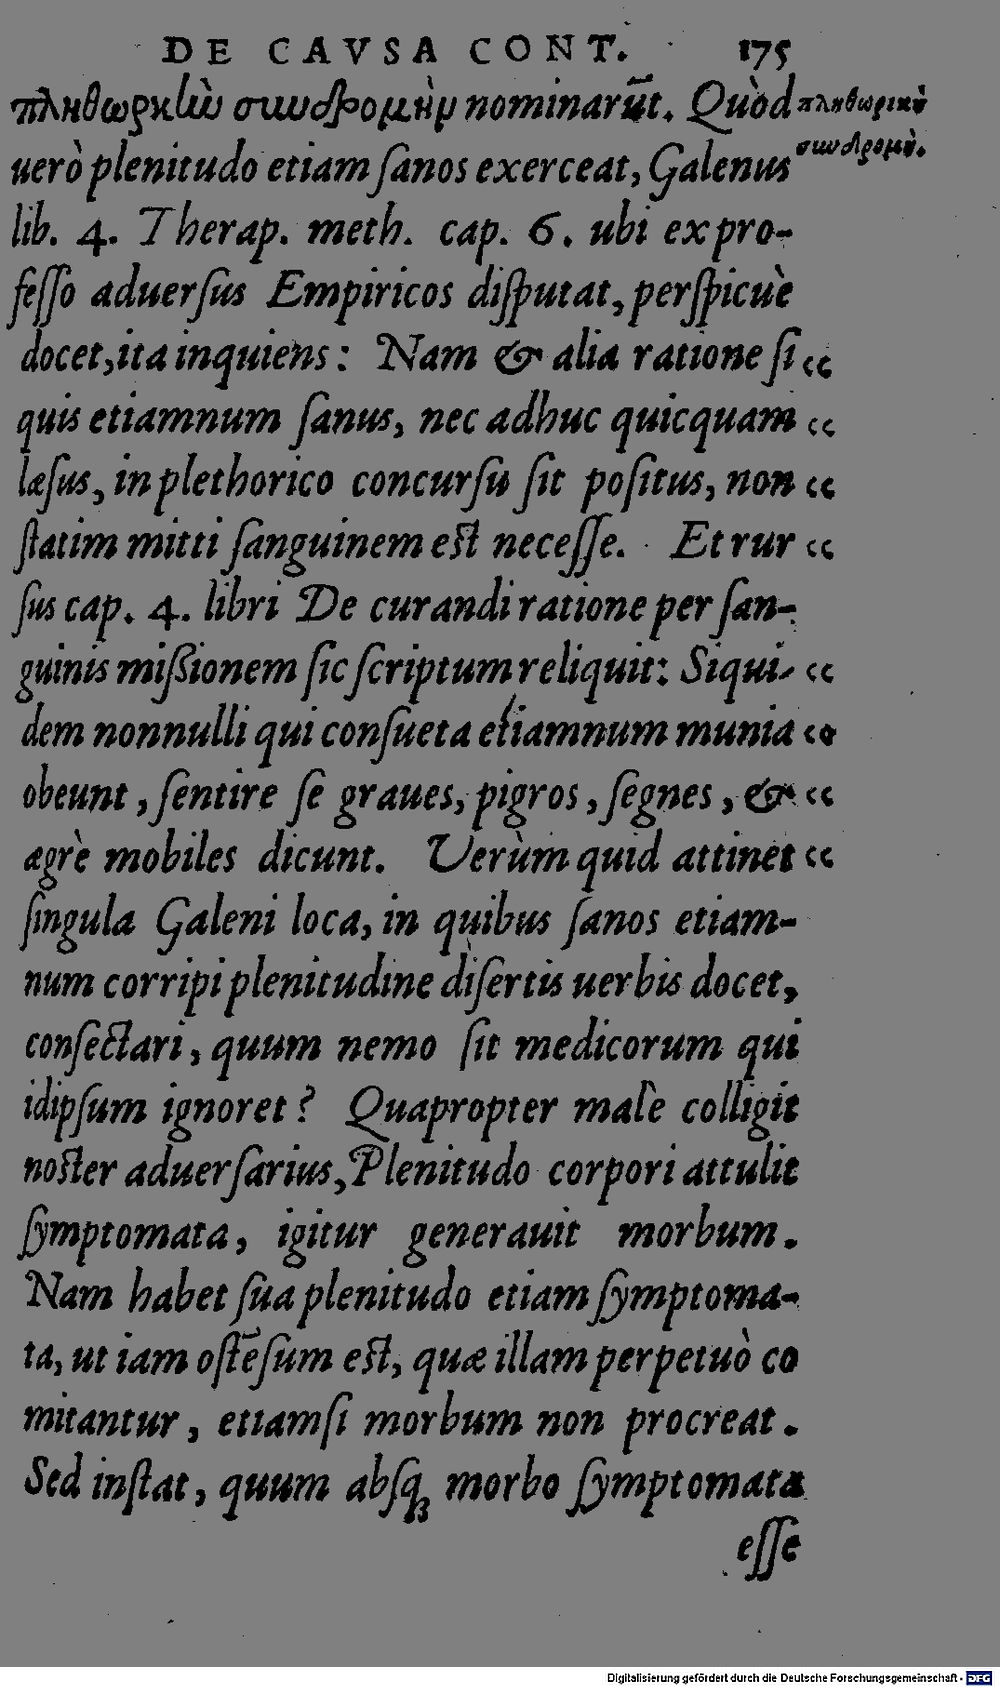 DE CAVSA CONT. 175
πληθωρικὼ συνδρομὴν nominarūt. Quòd
πληθωρικὴ
συνδρομὴ.
uerò plenitudo etiam ſanos exerceat, Galenus
lib. 4. Therap. meth. cap. 6. ubi ex pro-
feſſo aduerſus Empiricos diſputat, perſpicuè
docet, ita inquiens: Nam & alia ratione ſi “
quis etiamnum ſanus, nec adhuc quicquam “
læſus, in plethorico concurſu ſit poſitus, non “
ſtatim mitti ſanguinem eſt neceſſe. Et rur “
ſus cap. 4. libri De curandi ratione per ſan-
guinis miſsionem ſic ſcriptum reliquit: Siqui- “
dem nonnulli qui conſueta etiamnum munia “
obeunt, ſentire ſe graues, pigros, ſegnes, & “
ægrè mobiles dicunt. Uerùm quid attinet “
ſingula Galeni loca, in quibus ſanos etiam-
num corripi plenitudine diſertis uerbis docet,
conſectari, quum nemo ſit medicorum qui
idipſum ignoret? Quapropter malè colligit
noſter aduerſarius, Plenitudo corpori attulit
ſymptomata, igitur generauit morbum.
Nam habet ſua plenitudo etiam ſymptoma-
ta, ut iam oſtēſum eſt, quæ illam perpetuò co
mitantur, etiamſi morbum non procreat.
Sed inſtat, quum abſq; morbo ſymptomata
eſſe
Digitalisierung gefördert durch die Deutsche Forschungsgemeinschaft - DFG